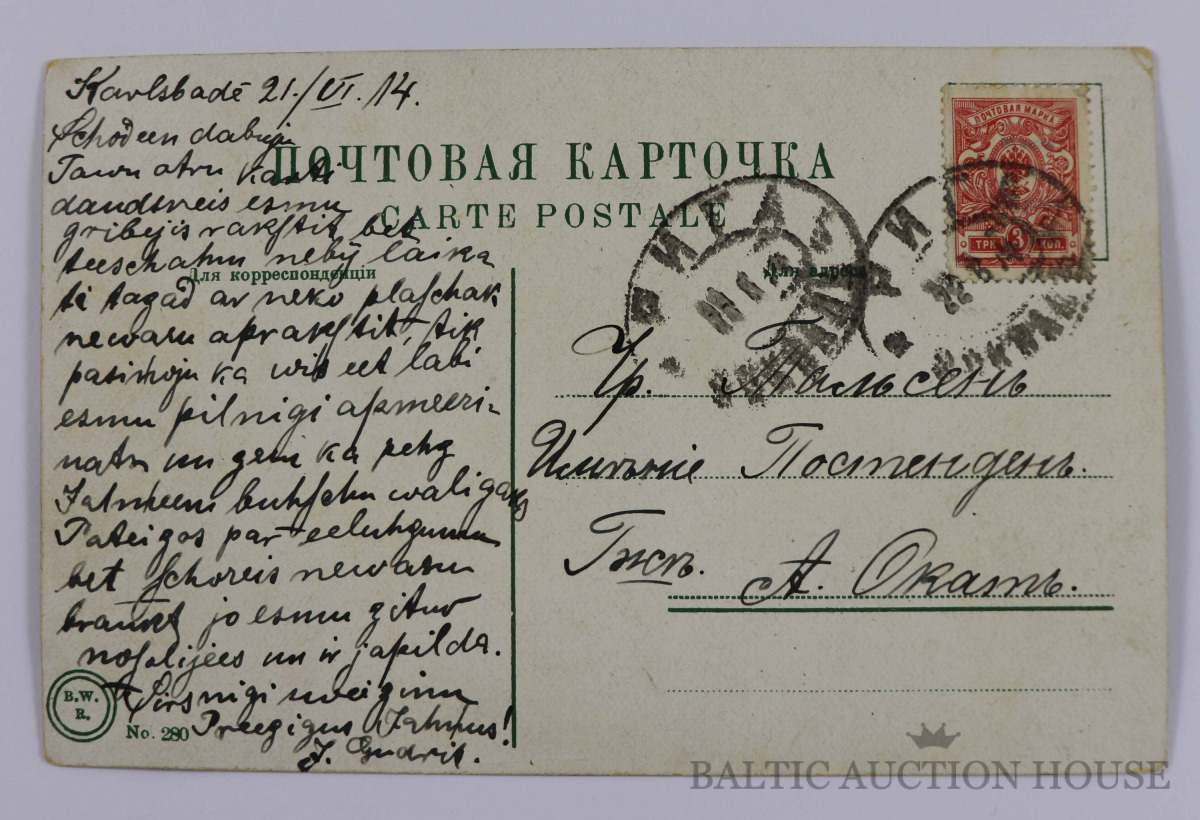 Karlsbadē 21./VI. 14.
Schodeen dabuju
Tawu otru karti
daudsreis esmu
gribejis rakstit bet
teeschamu nebij laika
ti tagad ar neko plaschak
newaru aprakstit, tik
pasinoju ka wis eet labi
esmu pilnigi apmeeri-
nats un
Jahneem buhschu waligaks
Pateizos par eeluhgumu
bet schoreis newaru
braukt jo esmu zitur
nosolijees un ir japilda.
Sirsnigi sweizinu
Preezigus Jahnus!
J. Gudrit.
ПОЧТОВАЯ КАРТОЧКА
CARTE POSTALE
Для корреспонденціи
Для адреса
ПОЧТОВАЯ МАРКА
ТРИ 3 КОП.
РИГА
РИГА
ВОКЗАЛЪ
Гр. Мальсень
Имѣніе Постенденъ.
Гжѣ. А. Окатъ.
B.W.
R.
No. 280
BALTIC AUCTION HOUSE